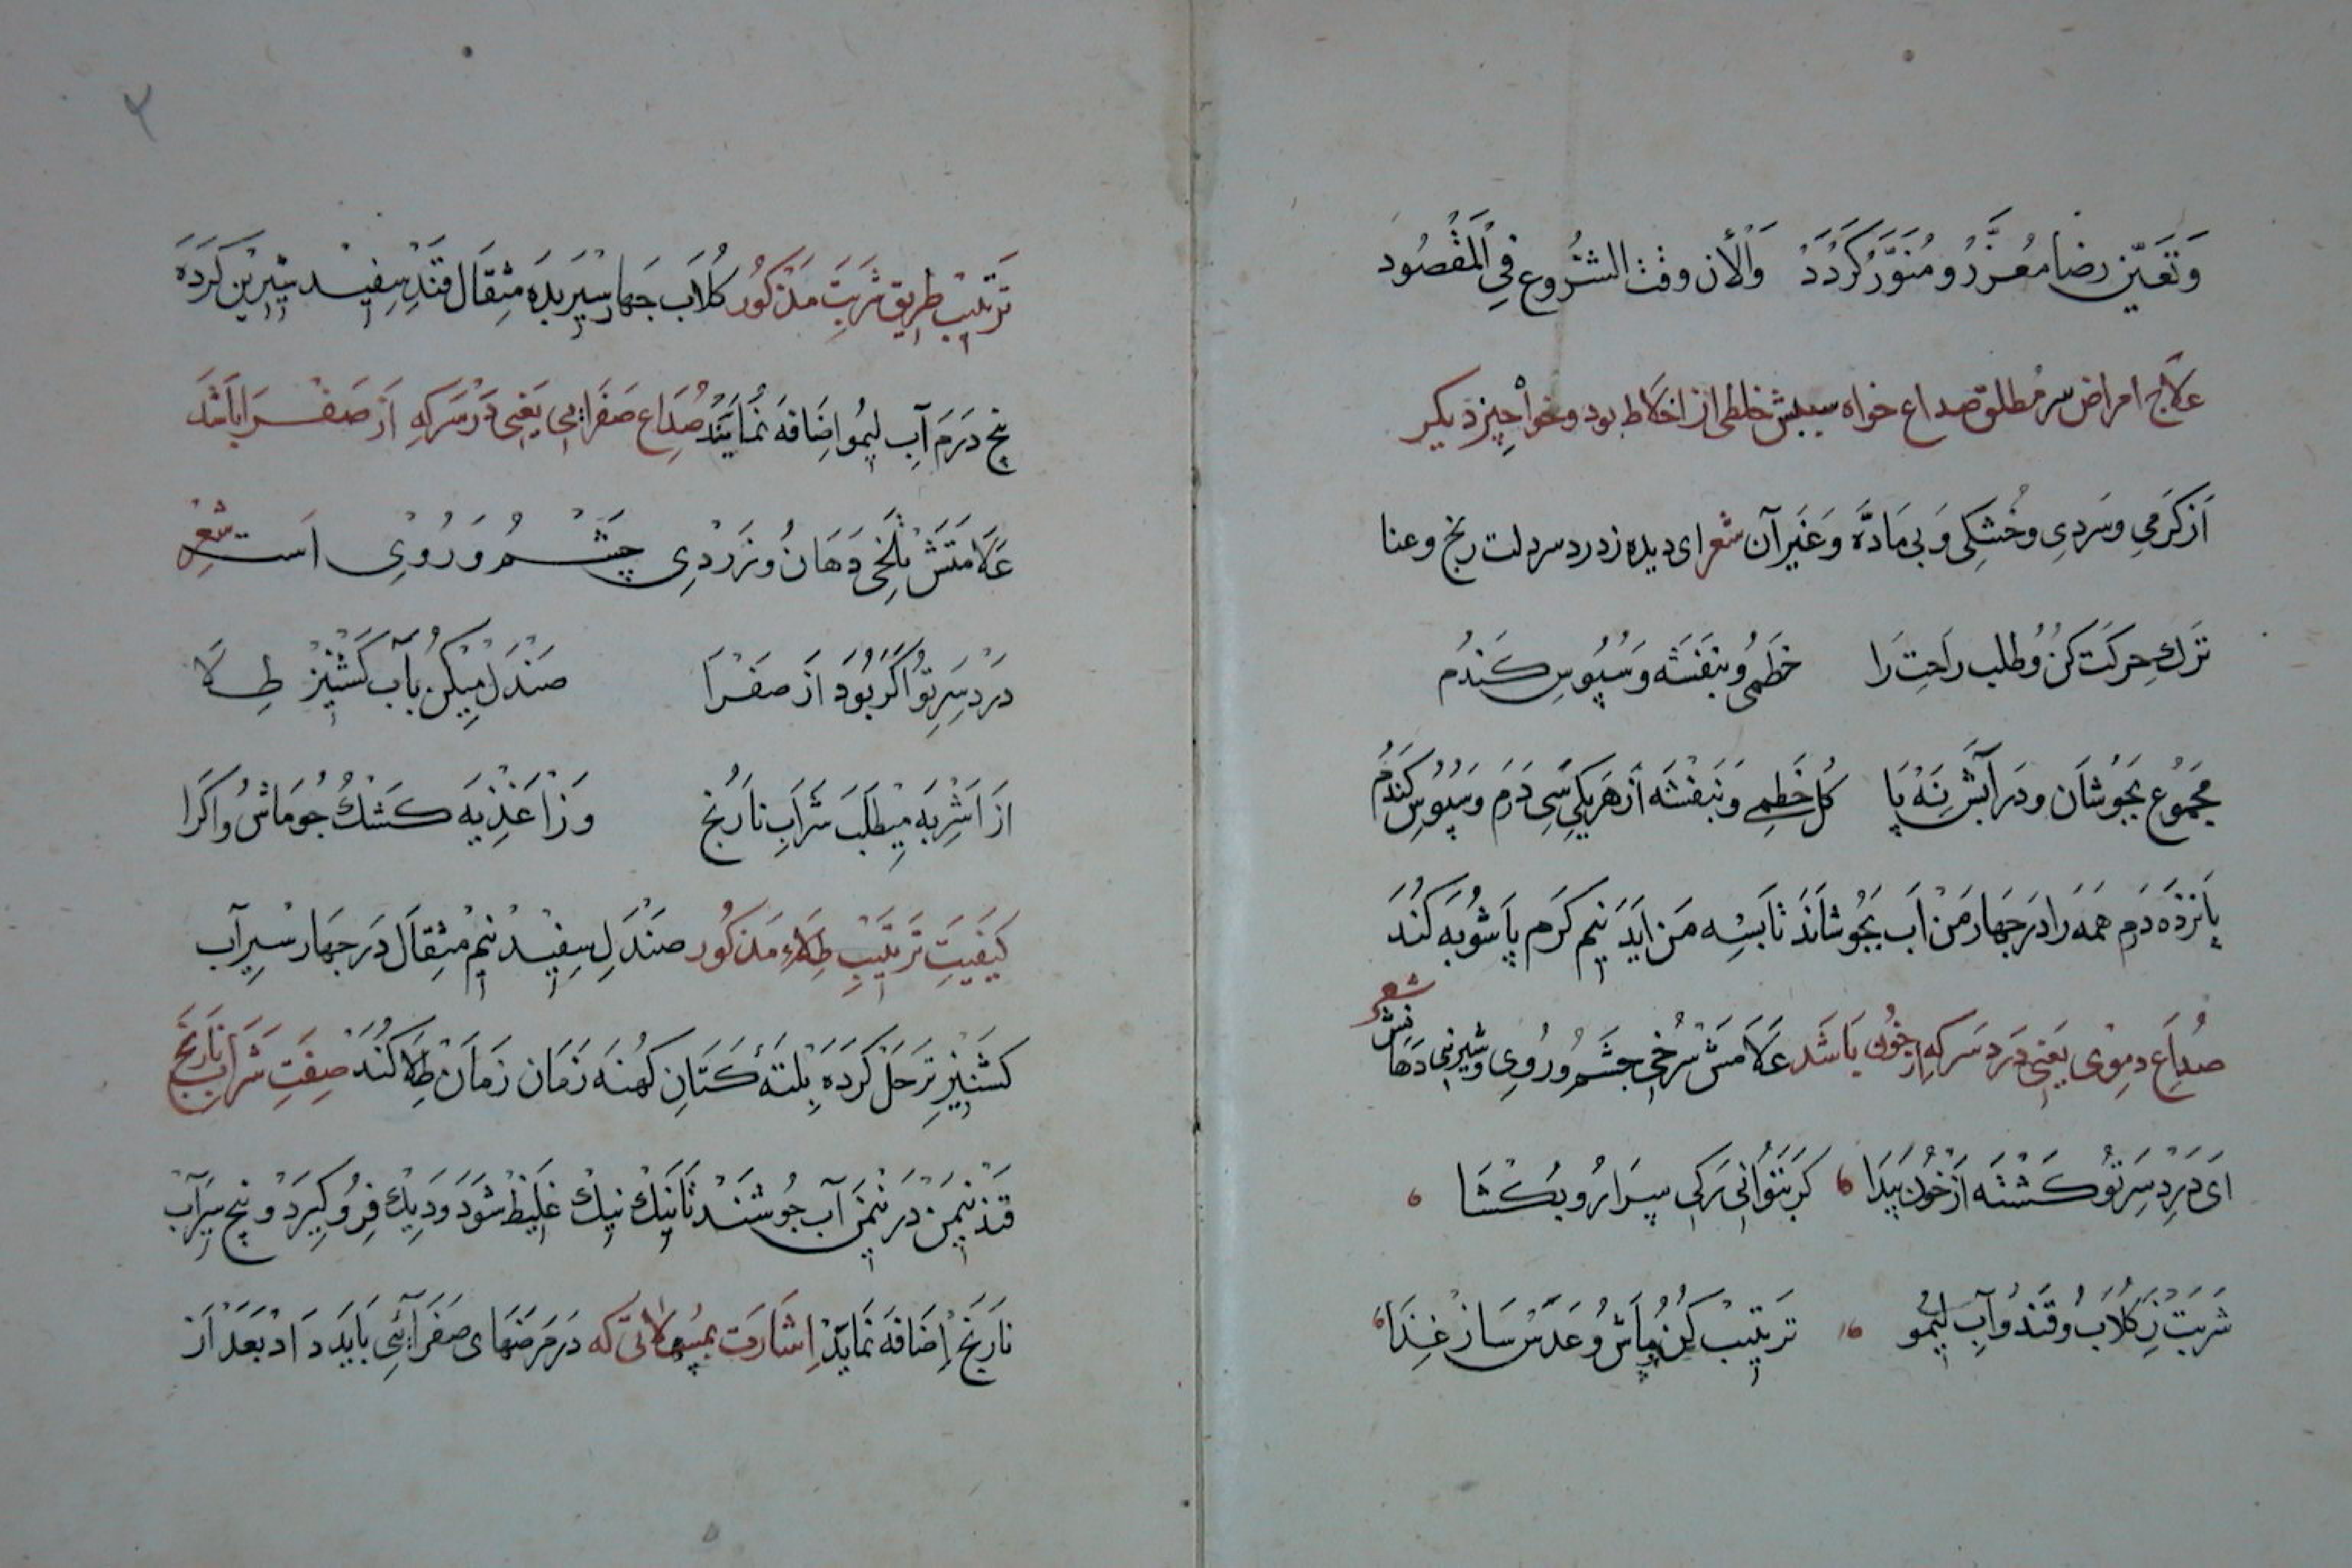 وَتَعَیّن رضا معُزّزُ و مُنَوَّرْ کَرْدَدْ وَالْاَن وقت الشُّرُوع فِی الْمَقْصُود
عَلَاج امراض سر مُطلق صداع خواه سببش خلطی از اخلاط بود و خواْ چیز دیکر
اَز کَرمیِ و سَردیِ و خُشکِی وَ بی مَادَّه وَ غَیر آن شعر ای دیده ز درد سر دلت رنج و عنا
تَرْكِ حِرکَت کَنُ وُ طَلب راحِت رَا خَطْمِی وُ بنفَشَه وَ سُپوُسِ کَندُم
مجَموُع بجَوُشان و دَر آبَش نِه پا کُل خَطمِی وَ بَنفشَه اَز هَریکی سِی دَرَم وَ سپُوُسِ کَندُم
پَانزدَه دَرَم همَه رَا دَر جَهار مَنْ اَب بجُوشانَدْ تا بَسِه مَن اَیَدْ نیم کَرَم پَاشوُیَه کُنَدْ
صُدِاَع دموُی یَعنِی دَرد سَر کهِ از خُون باَشَد عَلاَمتَش سُرخی جشَم وُ رُوِی و شیِرنی دَهانِش شعر
اَی دَرْدِ سَرِ تُو کَشْتَه اَز خُون پَیَدَا کَر بَتوَانی رَکی سِرَا رُو بکُشَا
شَربَتْ زِ کُلاَبْ وُ قَندُ وُ آبِ لیمُو تَرتِیبْ کُن وُ مَاش وُ عَدَسْ سَازْ غِذَا
تَرتیِبْ طَریِق شَربَتَ مَذْکوُر کُلاَب جَهار سیْر بَدَه مِثقَال قَنْدِ سِفِیْد شیرِیْن کَرَدَه
پنج دَرَمَ آبِ لیمُو اِضَافهَ نُمایَنَدْ صُدَاع صَفرَایی یَعنِی دَردْ سَر کهِ اَز صَفْرَا باَشَدْ
عَلَامَتَشْ تَلخَی دَهَان وُ زَردْیِ چَشْمُ وَ رُوْیِ اَست شعْر
دَردِ سَرِ تُو اَکَر بُوَدْ اَز صَفَرا صَندَل میِکُن بآب کَشنیْز طِلَا
اَز اَشرِبهَ میِطَلَبْ شَرَابِ نارَنج وَز اَغذْیَه کَشْکُ جُو ماَش وُ اکَرا
کَیفیَتِ تَرتَیبِ طِلَاءِ مَذکوُر صَندَلِ سِفِیدْ نیم مِثقَال دَر جهَار سیْرِ آب
کَشنیِزِ تَر حَل کَردَه بِلَتَه ٔ کَتَانِ کهُنهَ زَمَان زَمَانْ طَلا کُنَندْ صِفَتِ شَرَابِ نَارنج
قَندْ نیمَن دَر نیمَن آب جُوشَنْد تَا نیَكْ نیَكْ غلَیظْ شَوَدْ وَ دَیكْ فِرُو کیِرَدْ وَ پنج سیْر آب
نَارَنجْ اِضَافَه نَمایَدْ اِشَارَت بمسُهلاتی که دَر مَرَضهَای صَفَرآئِی بَایَدْ دَادْ بَعَد اَز
۲